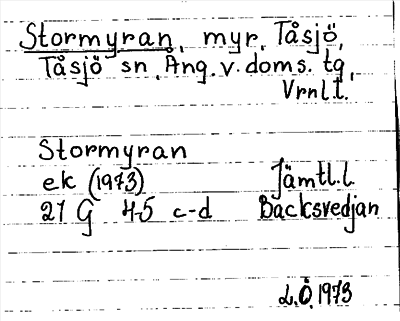 Stormyran, myr, Tåsjö,
Tåsjö sn, Ång. v. doms. tg,
Vrnl.l.
Stormyran
ek (1973) Jämtl.l.
21 G 4-5 c-d Backsvedjan
L.Ö. 1973